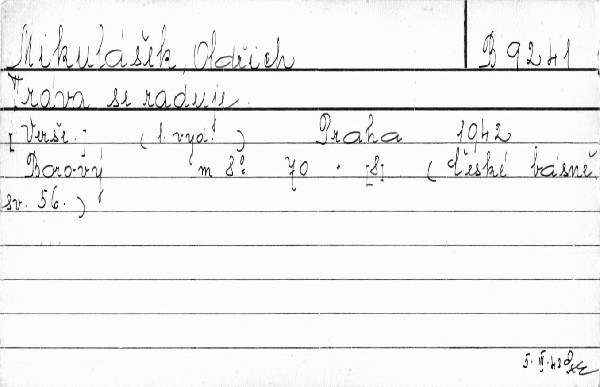 Mikulášek, Oldřich B 9241
Tráva se raduje.
[Verše.] (1. vyd.) Praha 1942
Borový m 8° 70 - [8] (České básně
sv. 56.)
5. II. 42